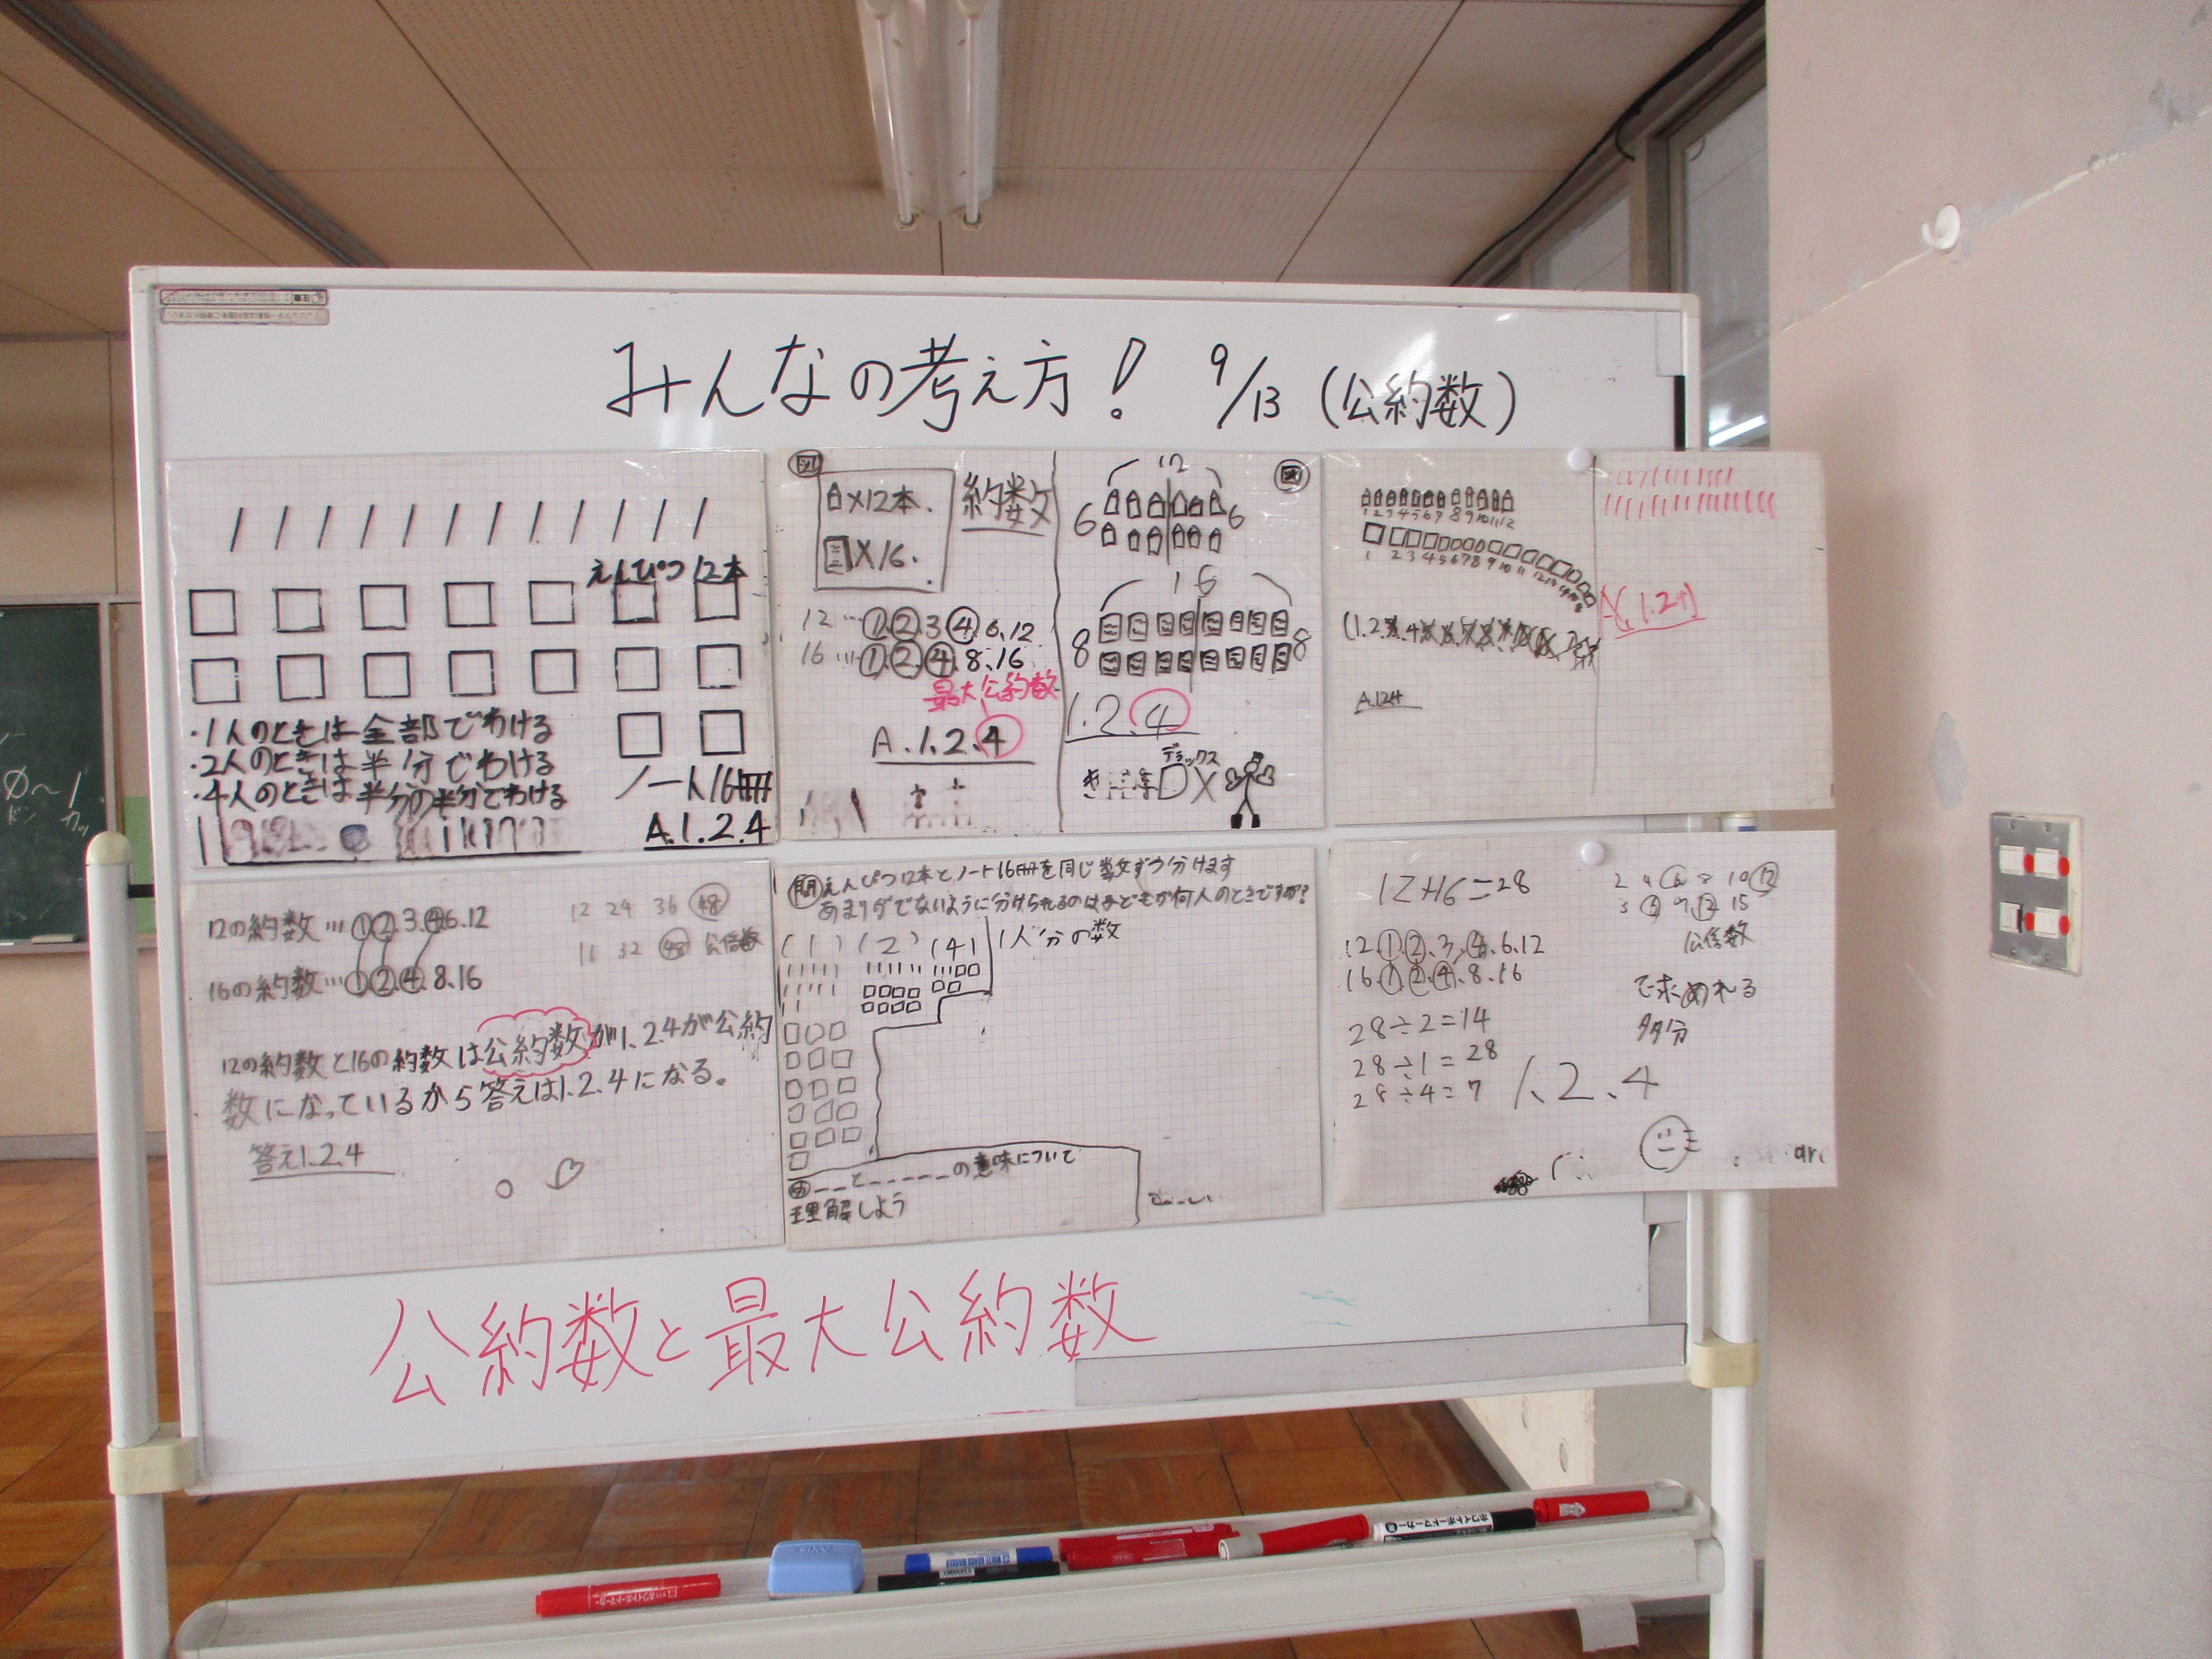 みんなの考え方! 9/13 (公約数)
えんぴつ12本
・1人のときは全部でわける
・2人のときは半分でわける
・4人のときは半分の半分でわける
ノート16冊
A.1.2.4
図
×12本.
×16.
約数
12…①.②.3.④.6.12
16…①.②.④.8.16
最大公約数
A.1.2.4
図
12
6 6
16
8 8
1.2.4
デラックス
DX
1 2 3 4 5 6 7 8 9 10 11 12
1 2 3 4 5 6 7 8 9 10 11 12 13
(1.2.
A.1.2.4
A(1.2.4)
12の約数…①②.3.④6.12
16の約数…①②.④.8.16
12 24 36 ㊽
16 32 ㊽ 公倍数
12の約数と16の約数は公約数が1.2.4が公約
数になっているから答えは1.2.4になる。
答え1.2.4
問 えんぴつ12本とノート16冊を同じ数ずつ分けます
あまりがでないように分けられるのは子どもが何人のときですか?
(1) (2) (4) 1人分の数
め__と_____の意味について
理解しよう
12+16=28
12.①.②.3.④.6.12
16.①.②.④.8.16
28÷2=14
28÷1=28
28÷4=7
1、2、4
2 4 ⑥ 8 10 ⑫
3 ⑥ 9 ⑫ 15
公倍数
で求めれる
多分
公約数と最大公約数
ホワイトボードマーカー